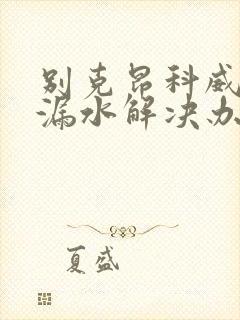 别克昂科威
漏水解决办
夏盛